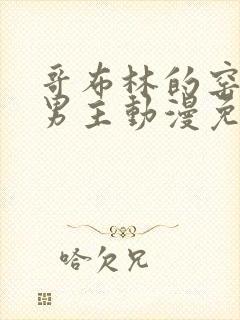 哥布林的窑
男主動漫免
哈欠兄